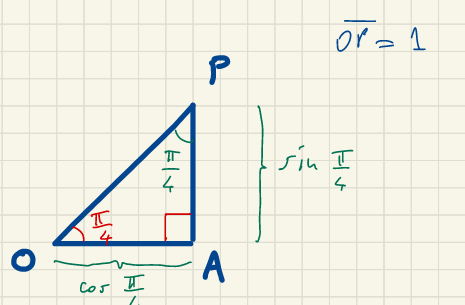 OP = 1
P
π/4
sin π/4
π/4
O
A
cos π/4